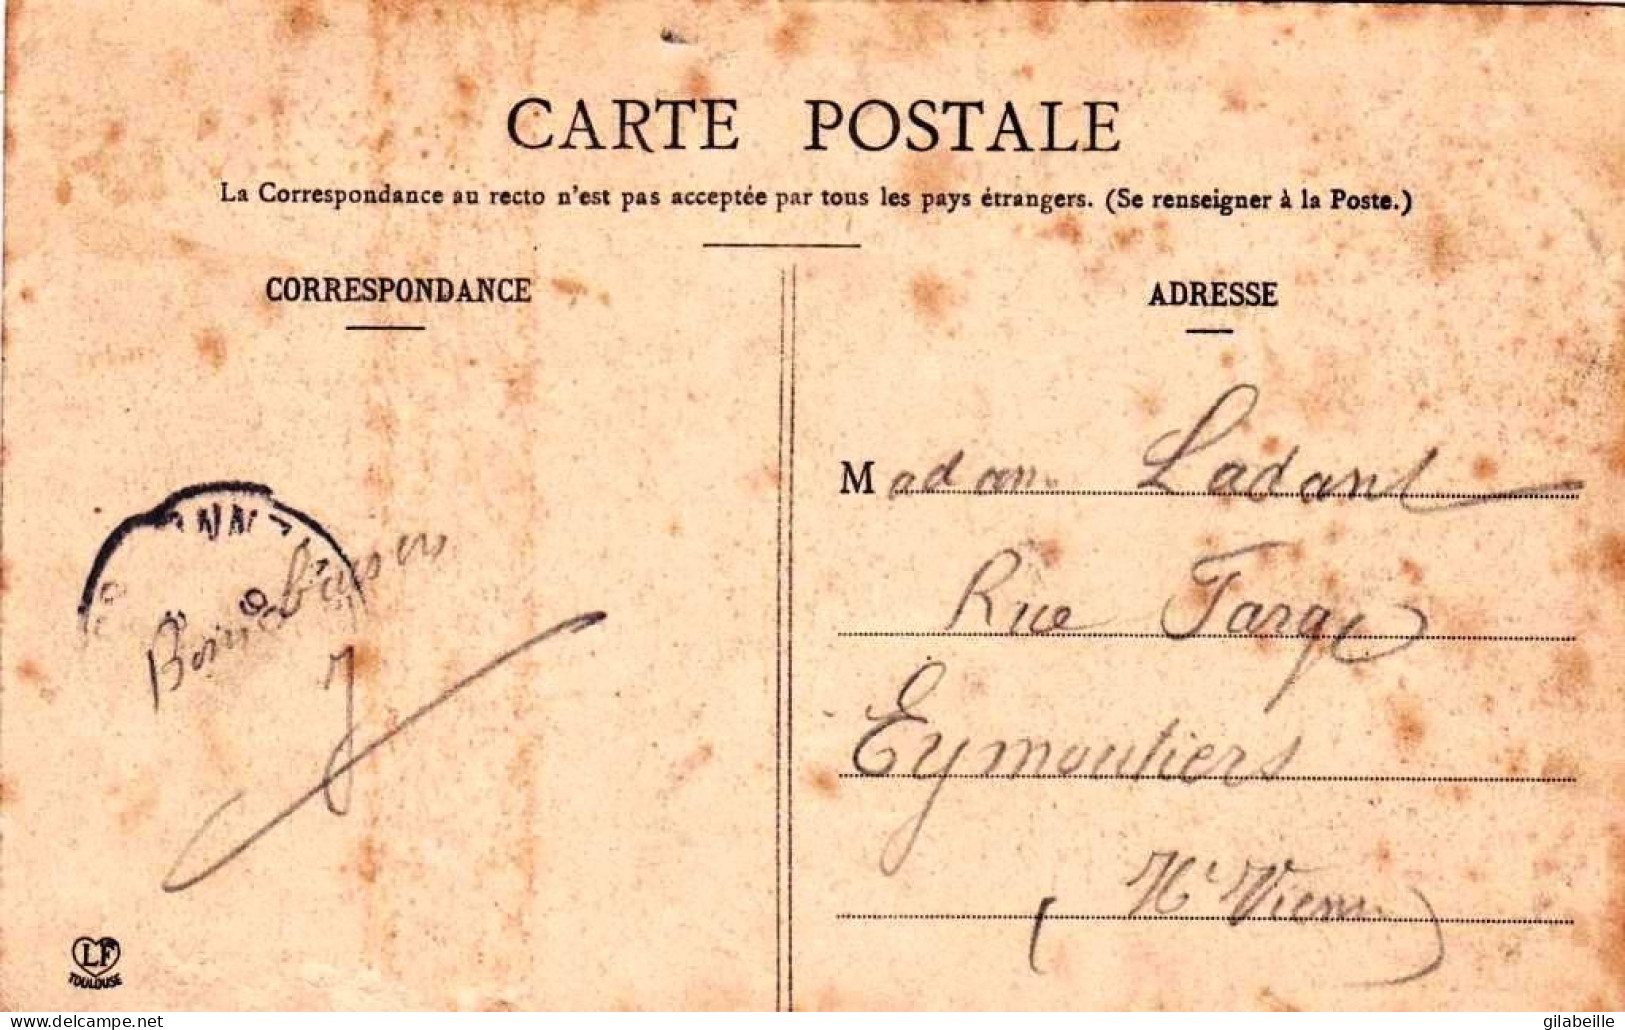 CARTE POSTALE
La Correspondance au recto n'est pas acceptée par tous les pays étrangers. (Se renseigner à la Poste.)
CORRESPONDANCE
ADRESSE
Madam Ladant
Rue Farge
Eymoutiers
(Hte Vienn.)
Bons baisers
J
LF
TOULOUSE
delcampe.net
gilabeille